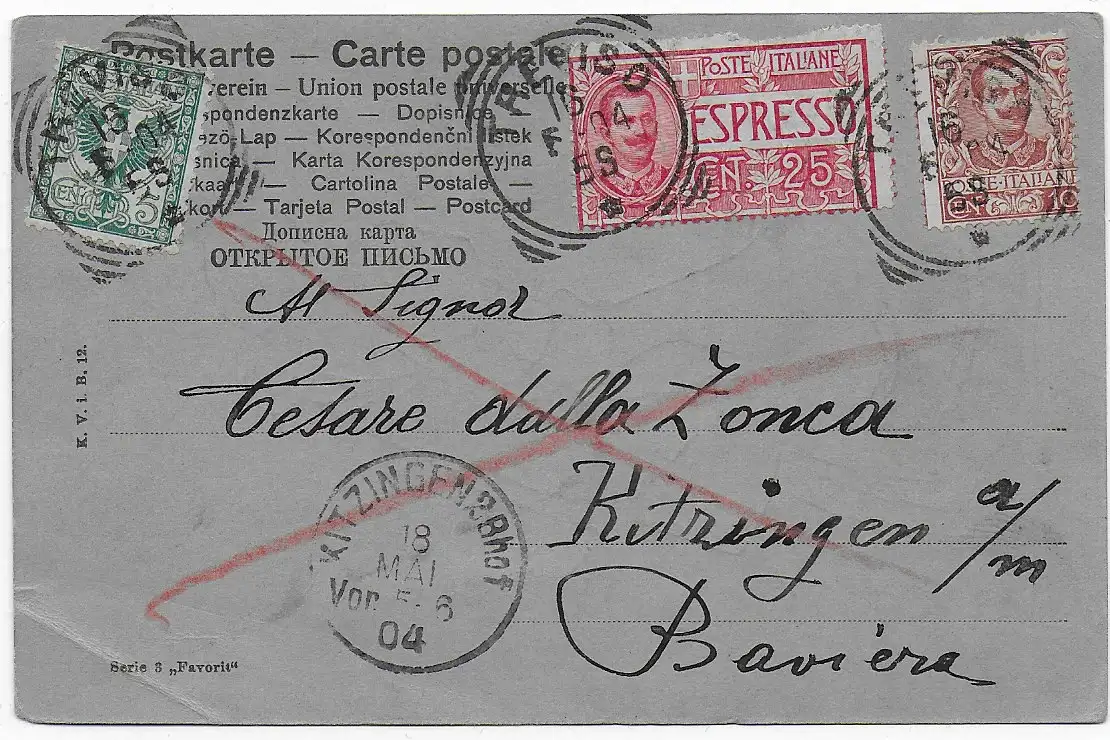 Postkarte — Carte postale
verein - Union postale universelle
spondenzkarte — Dopisnice
ező-Lap — Korespondenční lístek
snica — Karta Korespondenzyjna
kaa — Cartolina Postale —
kort — Tarjeta Postal — Postcard
Дописна карта
ОТКРЫТОЕ ПИСЬМО
CENT 5
TREVISO
04
POSTE ITALIANE
ESPRESSO
CEN. 25
TREVISO
04
POSTE·ITALIANE
CEN 10
04
Al Signor
Cesare dalla Zonca
Kitzingen a/m
Baviera
KITZINGEN 3 Bhof
18
MAI
Vor. 5-6
04
K. V. i. B. 12.
Serie 3 „Favorit“